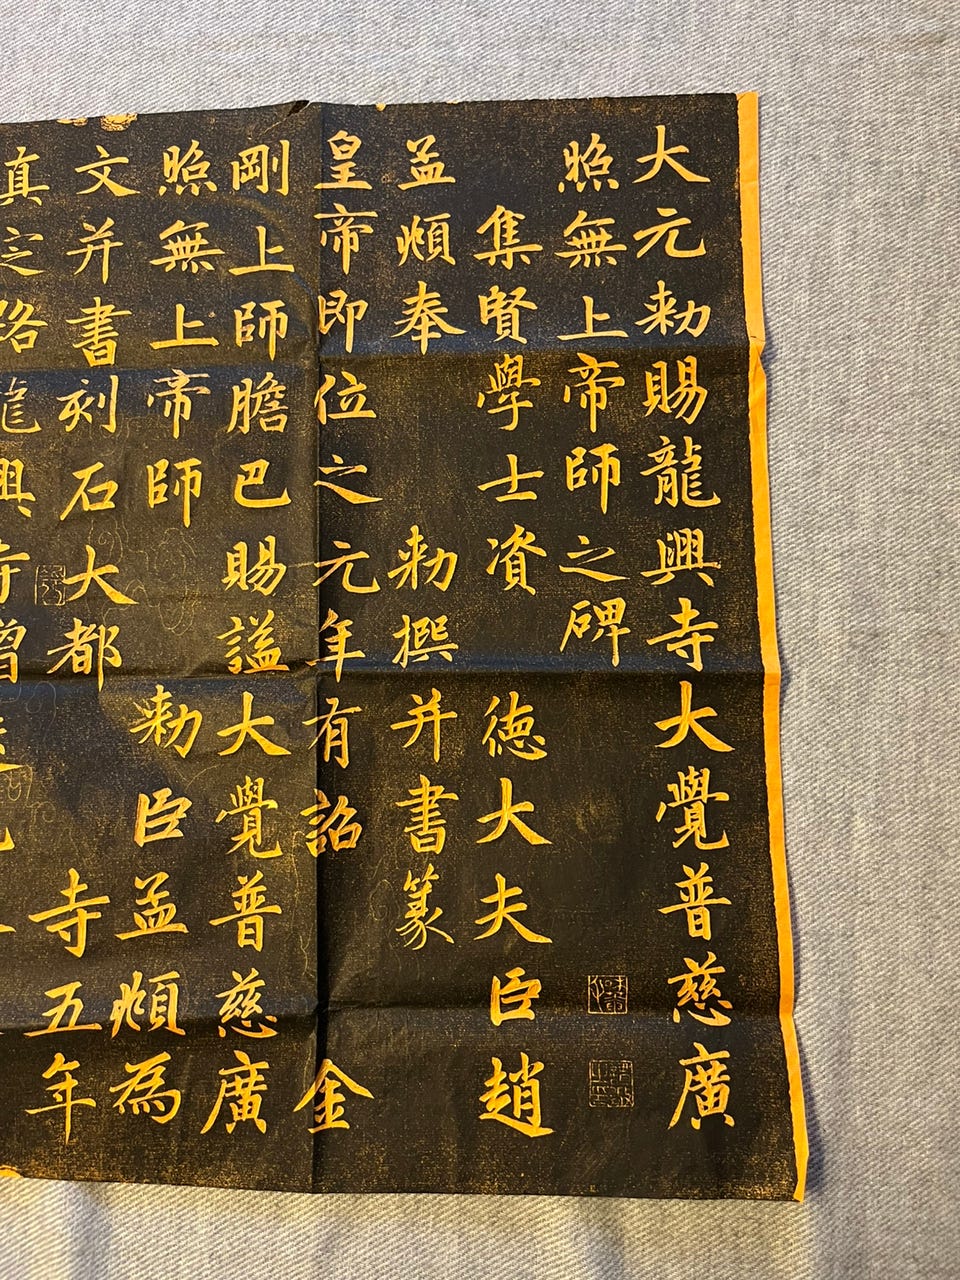 大元勅賜龍興寺大覺普慈廣
照無上帝師之碑
集賢學士資德大夫臣趙
孟頫奉勅撰并書篆
皇帝即位之元年有詔金
剛上師膽巴賜謚大覺普慈廣
照無上帝師勅臣孟頫為
文并書刻石大都寺五年
真定路龍興寺僧